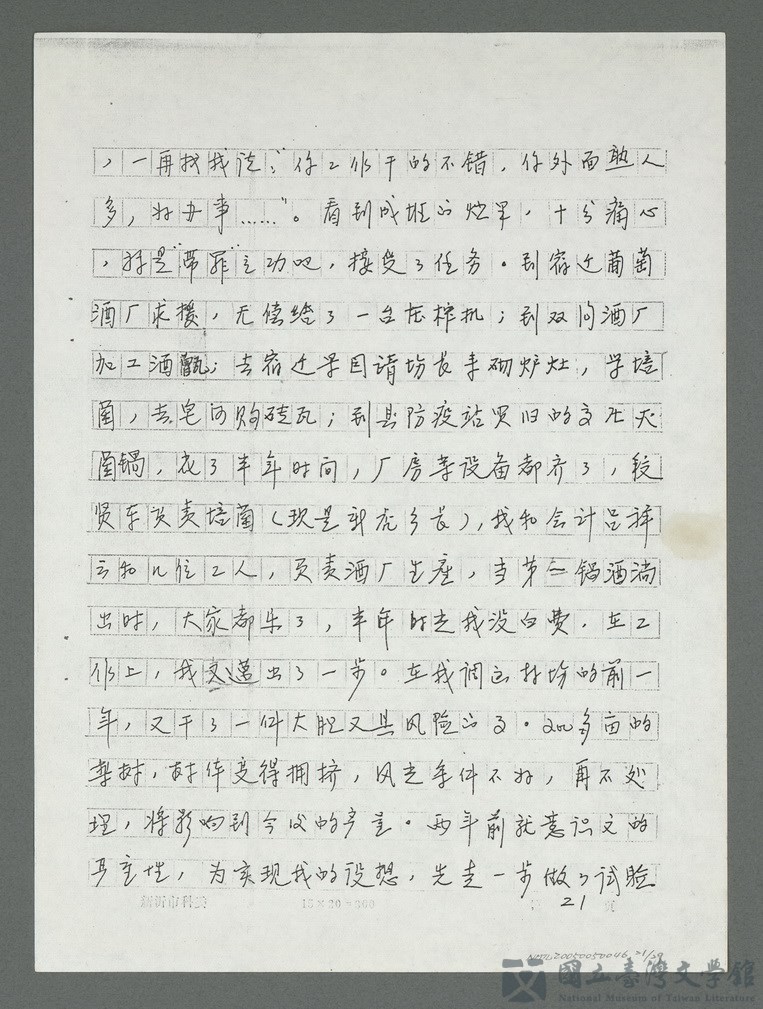 ，一再找我谈：“你工作干的不错，你外面熟人
多，好办事……”。看到成堆的烂果，十分痛心
，就是“带罪”立功吧，接受了任务。到宿迁葡萄
酒厂求援，无偿给了一台压榨机；到双沟酒厂
加工酒甑；去宿迁果园请场长来砌炉灶，学培
菌，去皂河购砖瓦；到县防疫站买旧的高压灭
菌锅，花了半年时间，厂房等设备都齐了，
贤东负责培菌（现是新店乡长），我和会计吕祥
云和几位工人，负责酒厂生产，当第一锅酒淌
出时，大家都乐了，半年时光我没白费，在工
作上，我又迈出了一步。在我调离林场的前一
年，又干了一件大胆又具风险的事。200多亩的
梨树，树体变得拥挤，风光条件不好，再不处
理，将影响到今后的产量。两年前就意识到的
严重性，为实现我的设想，先走一步做了试验
21
15×20=300
NMTL20050050046 21/59
國立臺灣文學館
National Museum of Taiwan Literature